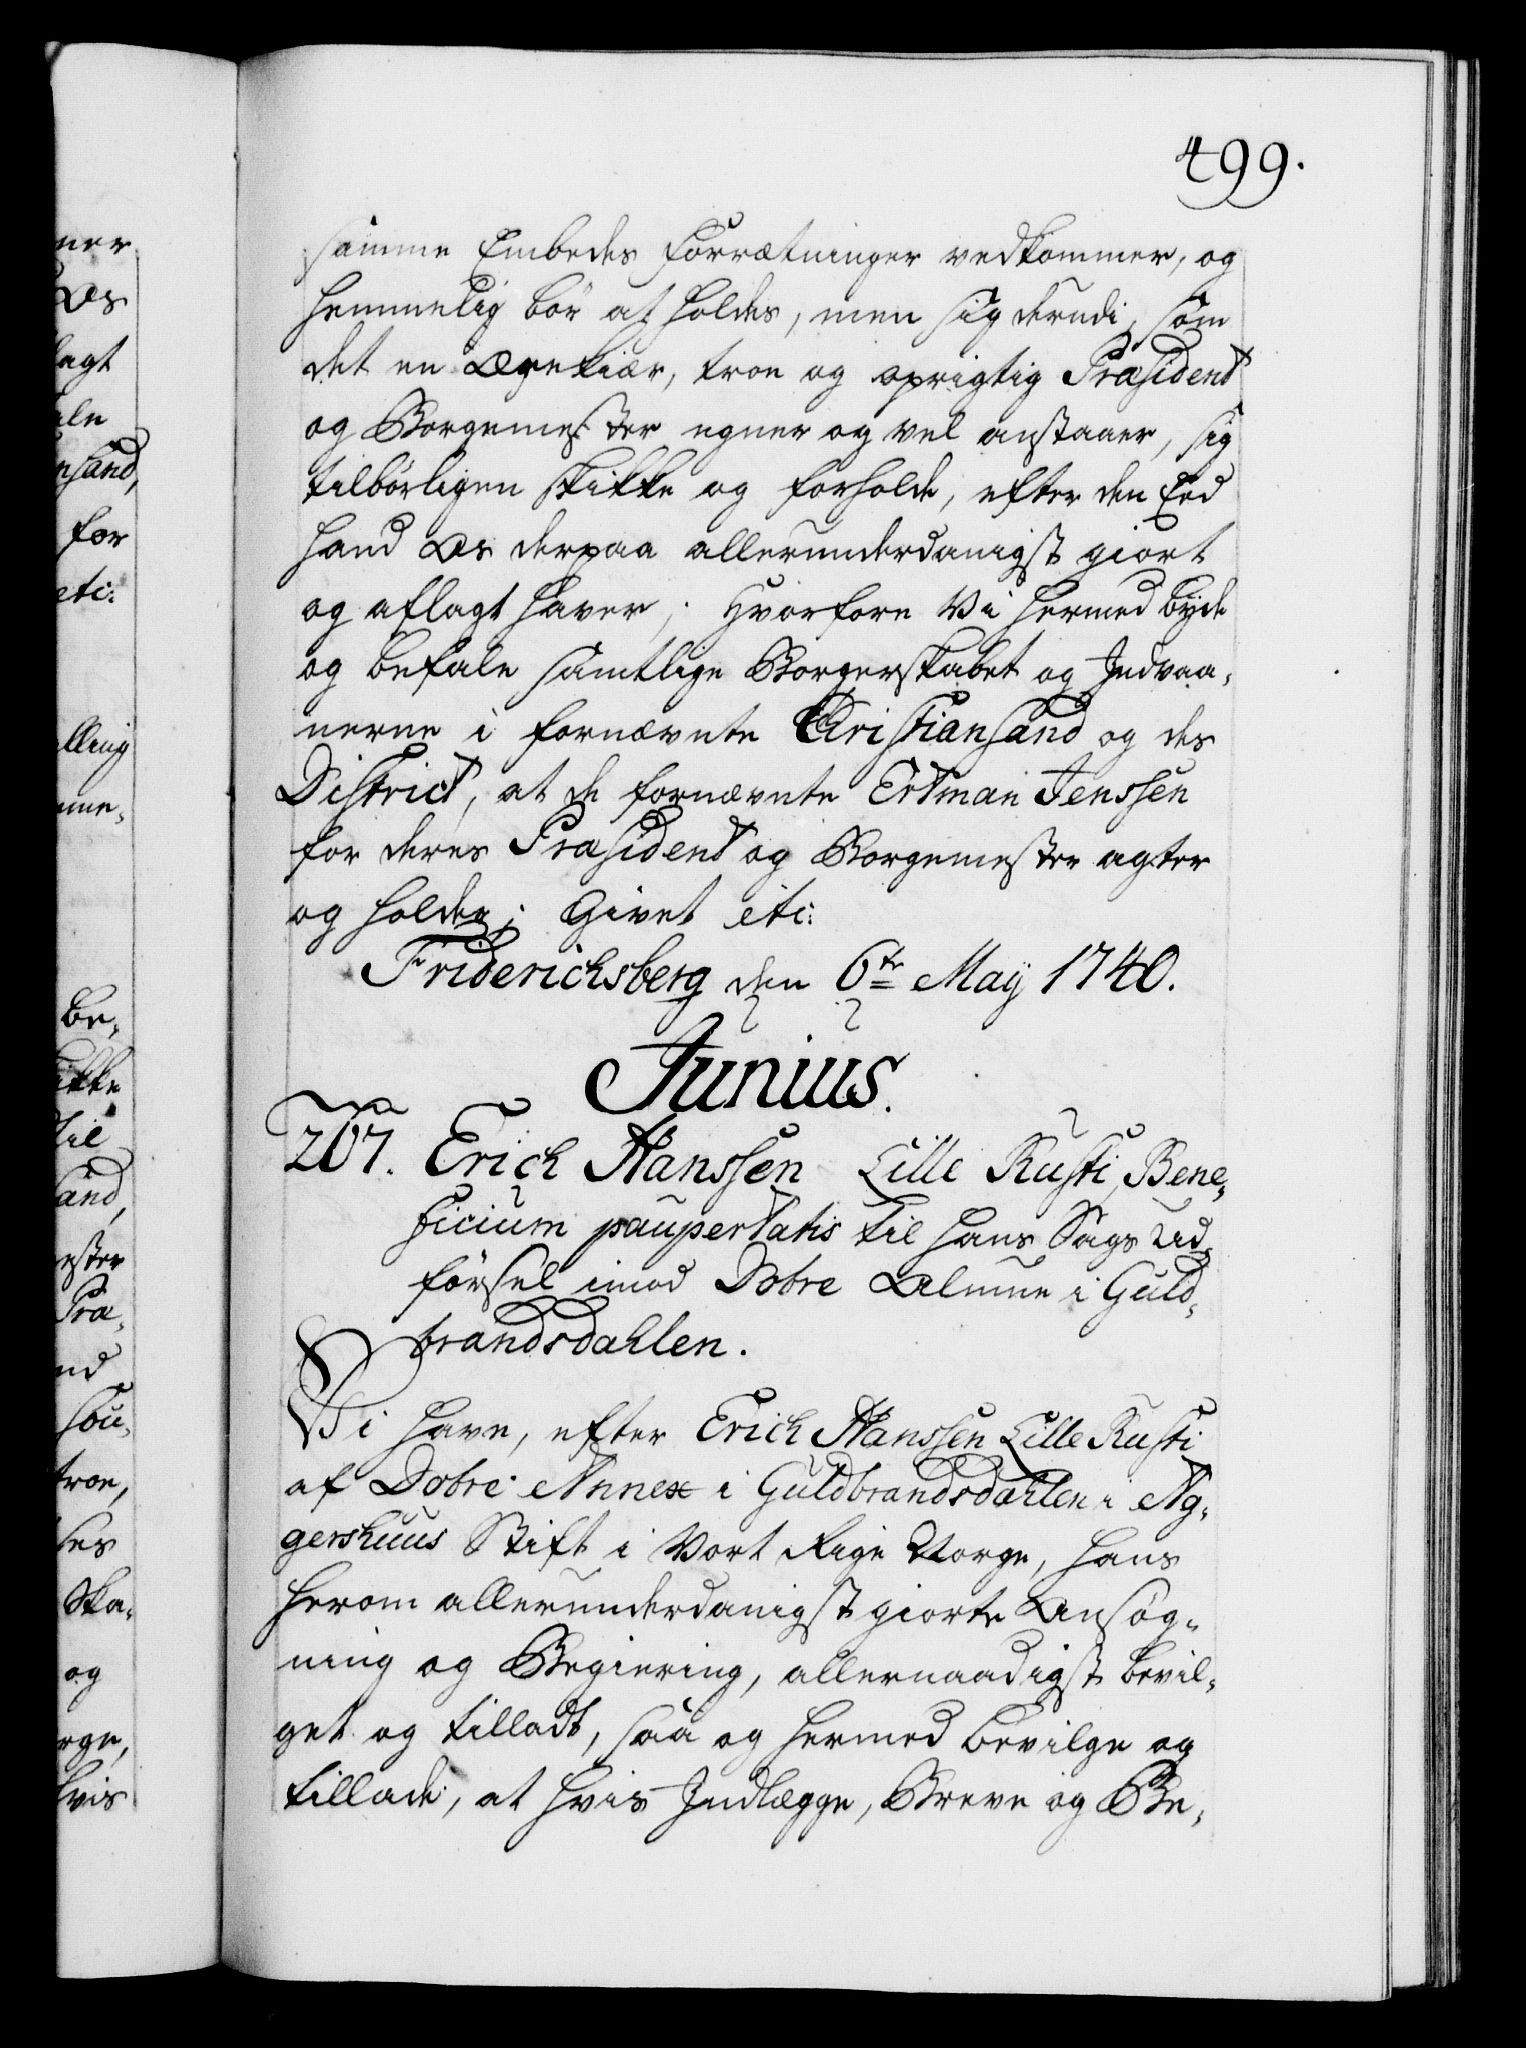 499.
samme Embedes Forrætninger vedkommer, og
hemmelig bør at holdes, men sig derudi, som
det en Ærekiær, troe og oprigtig Præsident
og Borgemester egner og vel anstaaer, sig
tilbørligen skikke og forholde, efter den Eed
hand Os derpaa allerunderdanigst giort
og aflagt haver; Hvorfore Vi hermed byde
og befale samtlige Borgerskabet og Indvaa-
nerne i fornævnte Christiansand og des
District, at de fornævnte Ertman Jenssen
for deres Præsident og Borgemester agter
og holder; Givet etc:
Friderichsberg den 6te May 1740.
Junius.
207. Erich Hanssen Lille Rusti, Bene-
ficium paupertatis til hans Sags Ud-
førsel imod Dobre Almue i Guld-
brandsdahlen.
Vi have, efter Erich Hanssen Lille Rusti
af Dobre Annex i Guldbrandsdahlen i Ag-
gershuus Stift i Vort Rige Norge, hans
herom allerunderdanigst giorte Ansøg-
ning og Begiering, allernaadigst bevil-
get og tilladt, saa og hermed bevilge og
tillade, at hvis Indlægge, Breve og Be-
ner
Os
lagt
ale
nsand,
for
etc:
alling
mme-
Be-
ikke
til
sand,
ester
Præ-
nd
sou-
troe,
des
Ska-
og
rge,
hvis